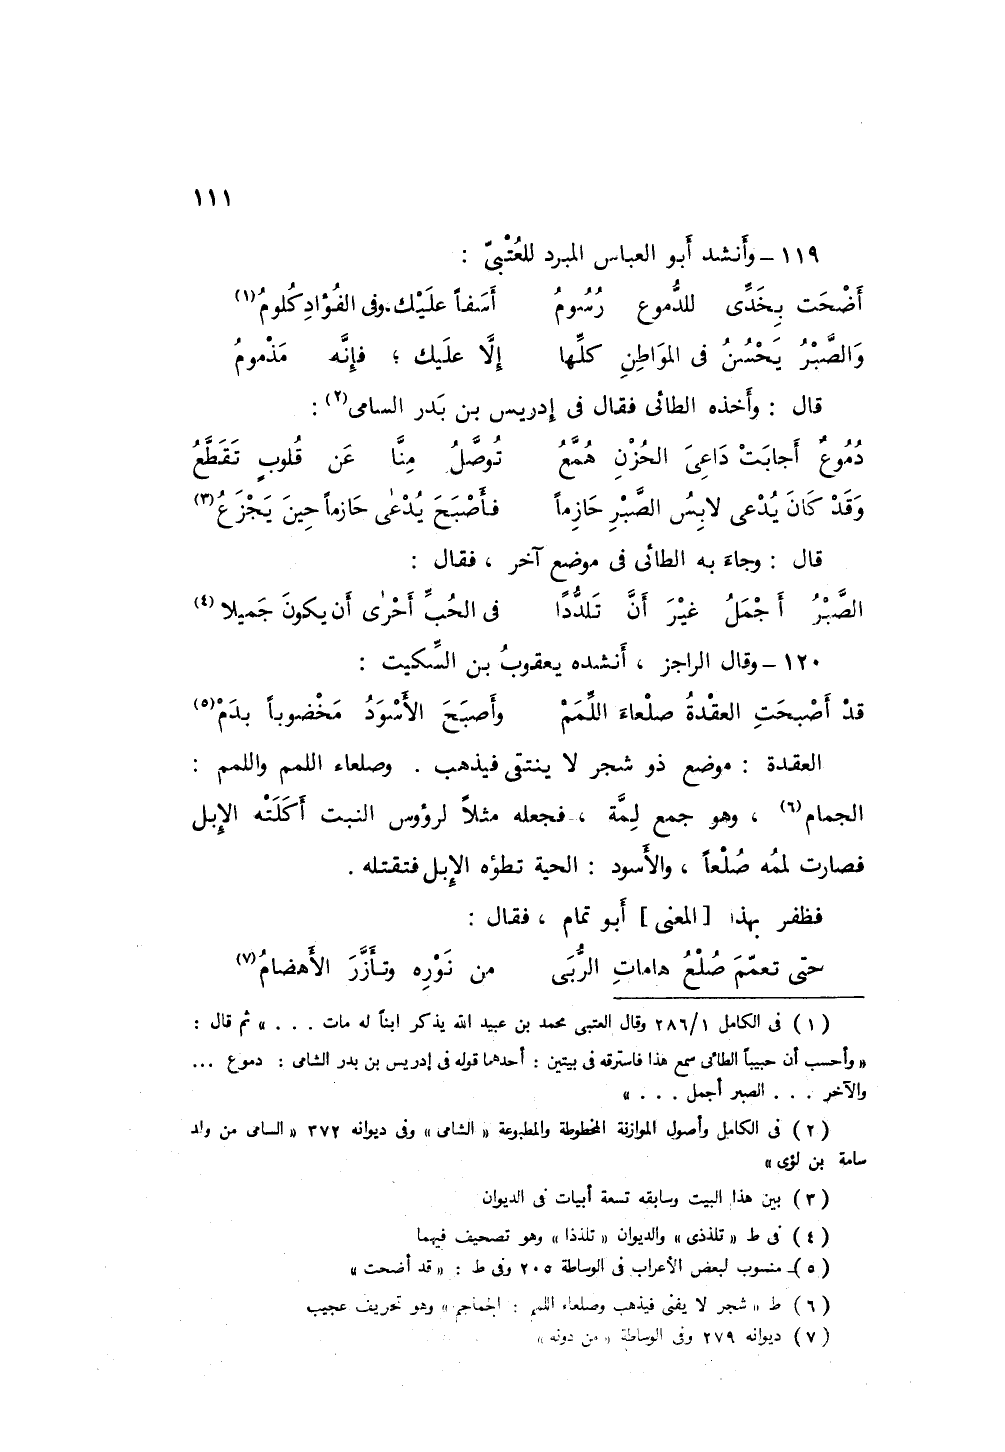 ١١١
١١٩ – وأَنشد أَبو العباس المبرد للعُتْبيّ :
أَضْحَت بِخَدِّى للدُّموع رُسُومُ أَسَفاً علَيْك . وفى الفُؤادِ كُلومُ (١)
وَالصَّبْرُ يَحْسُنُ فى المَوَاطِنِ كلِّها إلَّا علَيك ؛ فإنَّه مَذْمومُ
قال : وأَخذه الطائى فقال فى إدريس بن بَدر السامى (٢) :
دُمُوعٌ أَجابَتْ دَاعِىَ الحُزْنِ هُمَّعُ تُوصَّلُ مِنَّا عَن قُلوبٍ تَقَطَّعُ
وَقَدْ كَانَ يُدْعى لابِسُ الصَّبْرِ حَازِماً فأَصْبَحَ يُدْعٰى حَازماً حِينَ يَجْزَعُ (٣)
قال : وجاءَ به الطائى فى موضع آخر ، فقال :
الصَّبْرُ أَجْمَلُ غَيْرَ أَنَّ تَلدُّدًا فى الحُبِّ أَحْرٰى أَن يكونَ جَميلا (٤)
١٢٠ – وقال الراجز ، أَنشده يعقوبُ بن السِّكيت :
قدْ أَصْبحَتِ العقْدةُ صلْعاءَ اللِّمَمْ وأَصبَحَ الأَسْوَدُ مَخْضوباً بدَمْ (٥)
العقدة : موضع ذو شجر لا ينتقى فيذهب . وصلعاء اللمم واللمم :
الجمام (٦) ، وهو جمع لِمَّة ، فجعله مثلاً لرؤوس النبت أَكَلَتْه الإِبل
فصارت لممُه صُلْعاً ، والأَسود : الحية تطؤه الإِبل فتقتله .
فظفر بهذا [ المعنى ] أَبو تمام ، فقال :
حتّى تعمّمَ صُلْعُ هاماتِ الرُّبَى من نَوْرِه وتأَزَّرَ الأَهضامُ (٧)
( ١ ) فى الكامل ٢٨٦/١ وقال العتبى محمد بن عبيد الله يذكر ابناً له مات . . . » ثم قال :
« وأحسب أن حبيباً الطائى سمع هذا فاسترقه فى بيتين : أحدهما قوله فى إدريس بن بدر الشامى : دموع ...
والآخر . . . الصبر أجمل . . . »
( ٢ ) فى الكامل وأصول الموازنة المخطوطة والمطبوعة « الشامى » وفى ديوانه ٣٧٢ « السامى من ولد
سامة بن لؤى »
( ٣ ) بين هذا البيت وسابقه تسعة أبيات فى الديوان
( ٤ ) فى ط « تلذذى » والديوان « تلذذا » وهو تصحيف فيهما
( ٥ ) منسوب لبعض الأعراب فى الوساطة ٢٠٥ وفى ط : « قد أضحت »
( ٦ ) ط « شجر لا يفنى فيذهب وصلعاء اللمم : الجماجم » وهو تحريف عجيب
( ٧ ) ديوانه ٢٧٩ وفى الوساطة « من دونه »